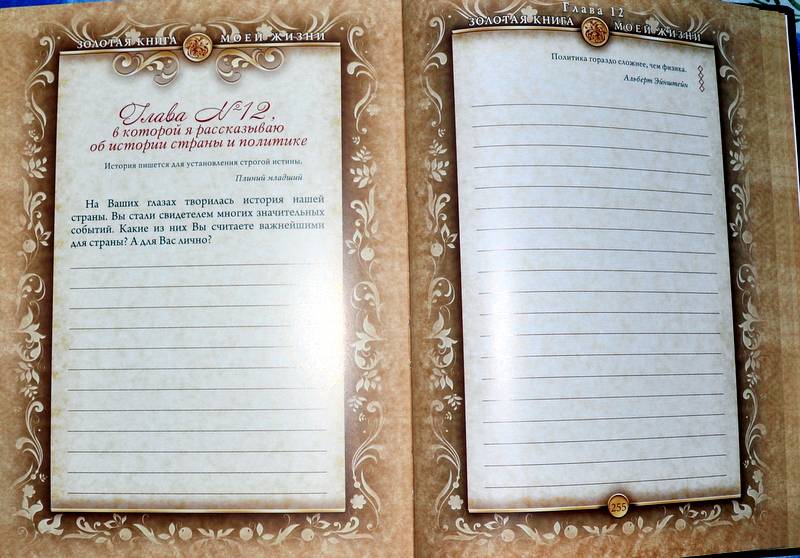 ЗОЛОТАЯ КНИГА МОЕЙ ЖИЗНИ
Глава №12,
в которой я рассказываю
об истории страны и политике
История пишется для установления строгой истины.
Плиний младший
На Ваших глазах творилась история нашей
страны. Вы стали свидетелем многих значительных
событий. Какие из них Вы считаете важнейшими
для страны? А для Вас лично?
Глава 12
ЗОЛОТАЯ КНИГА МОЕЙ ЖИЗНИ
Политика гораздо сложнее, чем физика.
Альберт Эйнштейн
255